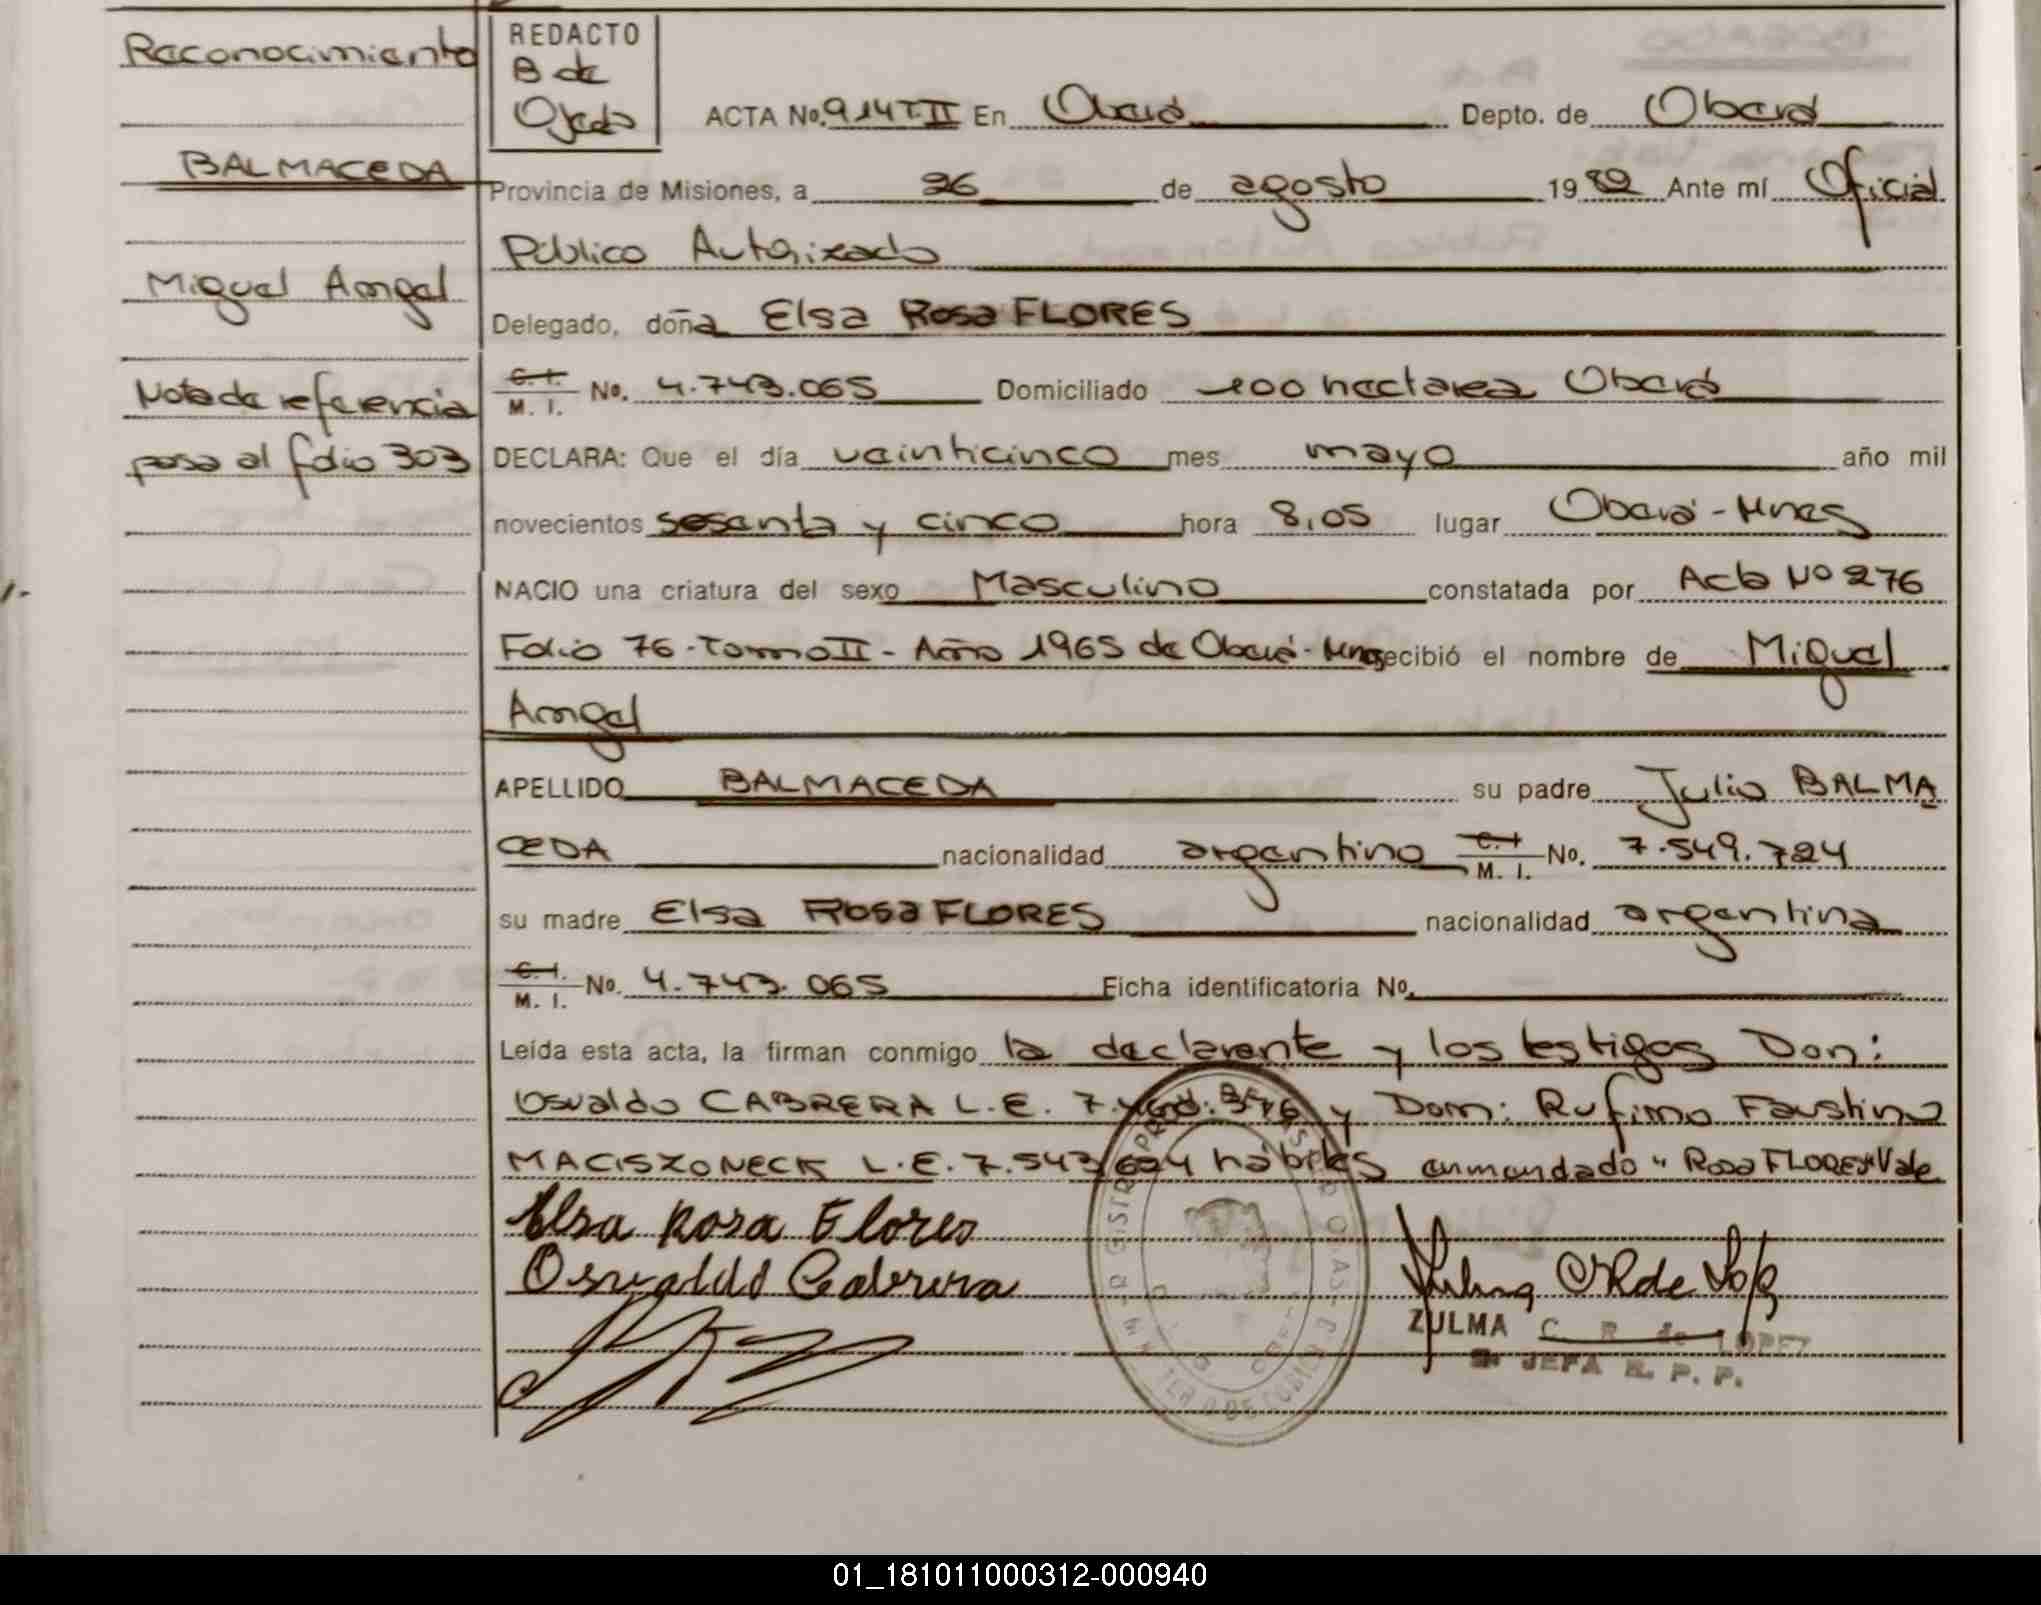 Reconocimiento
BALMACEDA
Miguel Angel
Nota de referencia
pasa al folio 303
REDACTO
B de
Ojeda
ACTA No. 914 T. II En Oberá Depto. de Oberá
Provincia de Misiones, a 26 de agosto 1982 Ante mí Oficial
Público Autorizado
Delegado, doña Elsa Rosa FLORES
C. I. M. I. No. 4.743.065 Domiciliado 100 hectarea Oberá
DECLARA: Que el día veinticinco mes mayo año mil
novecientos sesenta y cinco hora 8,05 lugar Oberá - Mnes
NACIO una criatura del sexo Masculino constatada por Acta Nº 276
Folio 76 - Tomo II - Año 1965 de Oberá - Mnes recibió el nombre de Miguel
Angel
APELLIDO BALMACEDA su padre Julio BALMA
CEDA nacionalidad argentino C. I. M. I. No. 7.549.724
su madre Elsa Rosa FLORES nacionalidad argentina
C. I. M. I. No. 4.743.065 Ficha identificatoria No.
Leída esta acta, la firman conmigo la declarante y los testigos Don:
Osvaldo CABRERA L.E. y Don: Rufino Faustino
MACISZONECK L.E. 7.543.624 hábiles enmendado "Rosa FLORES" Vale
Elsa Rosa Flores
Osvaldo Cabrera
ZULMA C. R. de LOPEZ
JEFA R. P. P.
01_181011000312-000940